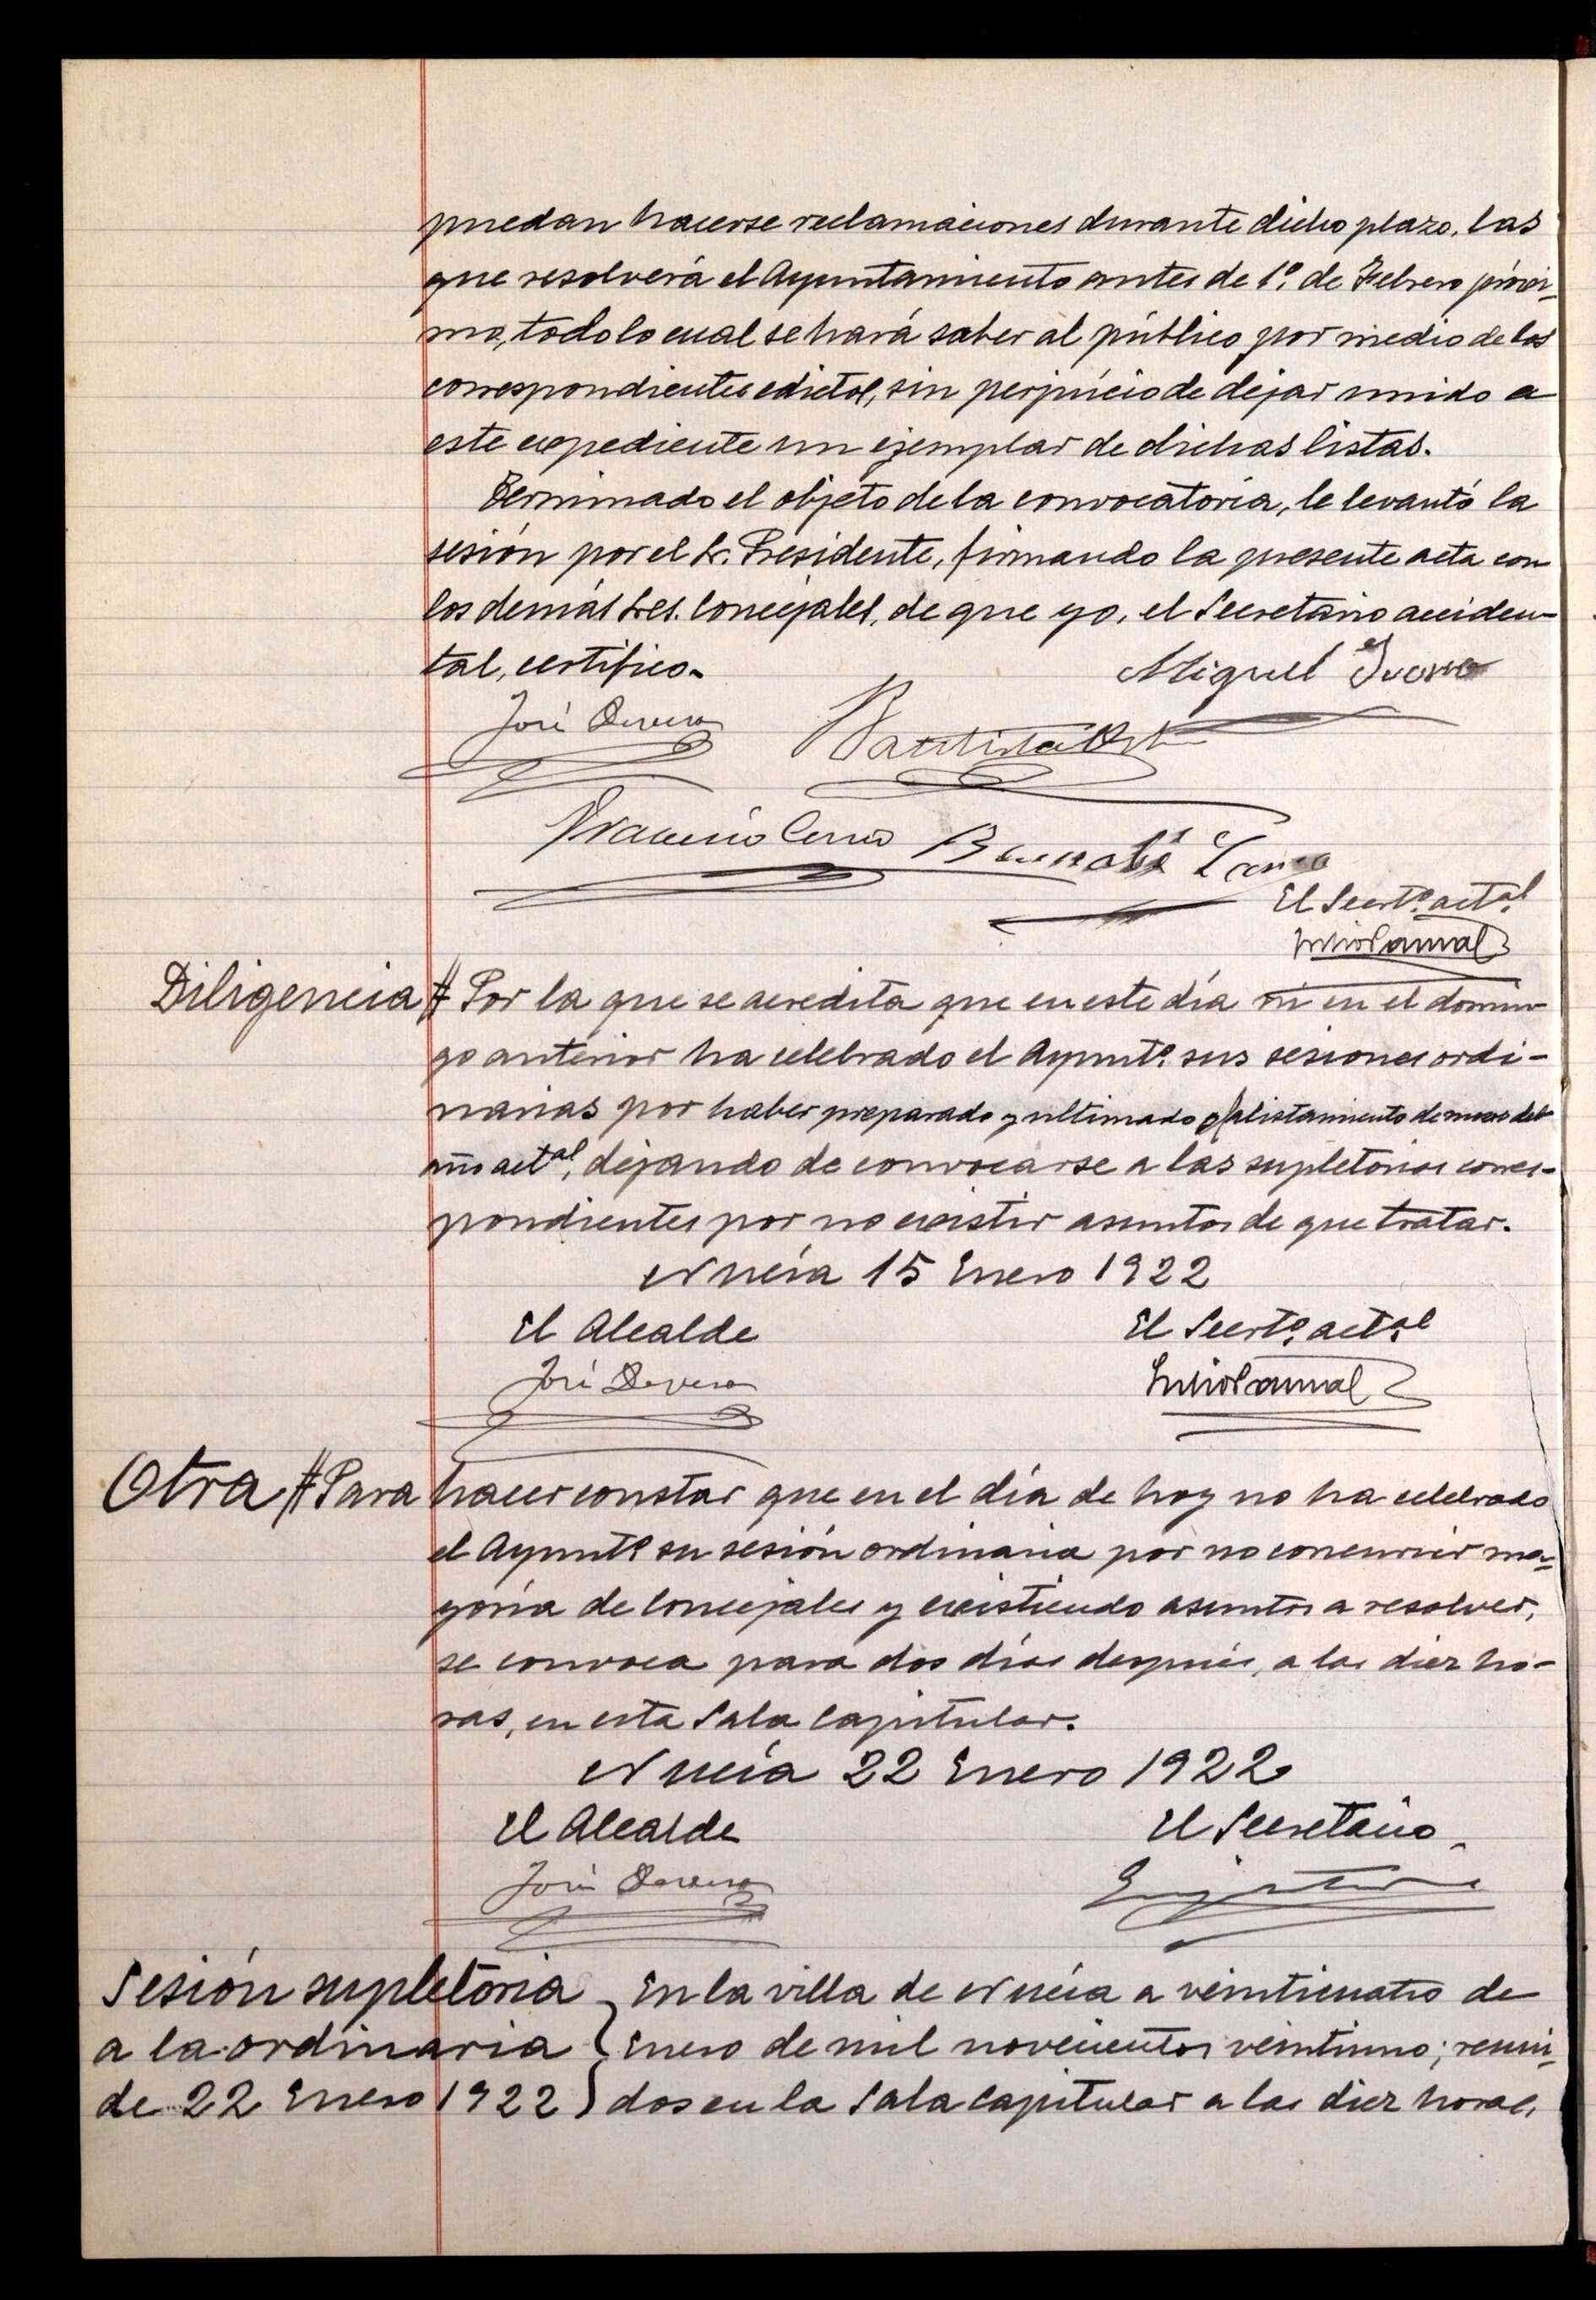 puedan hacerse reclamaciones durante dicho plazo, las
que resolverá el Ayuntamiento antes de 1º de Febrero próxi-
mo, todo lo cual se hará saber al público por medio de los
correspondientes edictos, sin perjuicio de dejar unido a
este expediente un ejemplar de dichas listas.
Terminado el objeto de la convocatoria, se levantó la
sesión por el Sr. Presidente, firmando la presente acta con
los demás Sres. Concejales, de que yo, el Secretario acciden-
tal, certifico.
Miguel
José Devesa
Bautista
Bernabé
El Secretº actal
Diligencia # Por la que se acredita que en este día ni en el domin-
go anterior ha celebrado el Ayuntº sus sesiones ordi-
narias por haber preparado y ultimado el alistamiento de mozos del
año actal, dejando de convocarse a las supletorias corres-
pondientes por no existir asuntos de que tratar.
Nucía 15 Enero 1922
El Alcalde El Secretº actal
José Devesa
Otra # Para hacer constar que en el día de hoy no ha celebrado
el Ayuntº su sesión ordinaria por no concurrir ma-
yoría de Concejales y existiendo asuntos a resolver,
se convoca para dos días después, a las diez ho-
ras, en esta Sala Capitular.
Nucía 22 Enero 1922
El Alcalde El Secretario
José Devesa
Sesión supletoria
a la ordinaria
de 22 Enero 1922
En la villa de Nucía a veinticuatro de
Enero de mil novecientos veintiuno; reuni-
dos en la Sala Capitular a las diez horas,